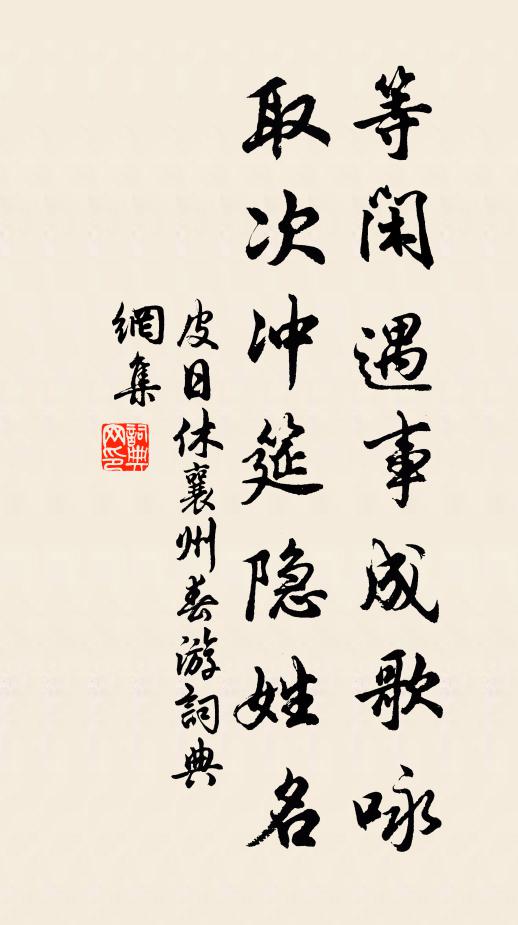 等闲遇事成歌咏
取次冲筵隐姓名
皮日休襄州春游詞典
網集
詞典
网印